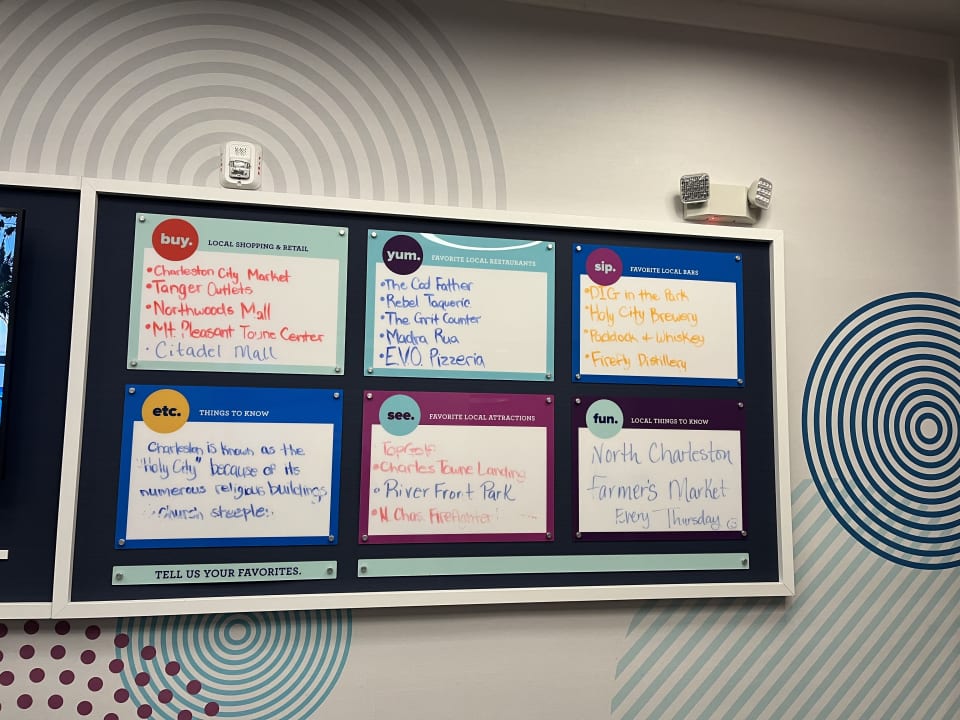 buy.
LOCAL SHOPPING & RETAIL
•Charleston City Market
•Tanger Outlets
•Northwoods Mall
•Mt. Pleasant Towne Center
•Citadel Mall
yum.
FAVORITE LOCAL RESTAURANTS
•The Cod Father
•Rebel Taqueria
•The Grit Counter
•Madra Rua
•E.V.O. Pizzeria
sip.
FAVORITE LOCAL BARS
•DIG in the Park
•Holy City Brewery
•Paddock & Whiskey
•Firefly Distillery
etc.
THINGS TO KNOW
Charleston is known as the
"Holy City" because of its
numerous religious buildings
church steeple
see.
FAVORITE LOCAL ATTRACTIONS
TopGolf
•Charles Towne Landing
•River Front Park
•N. Chas. Firefighter
fun.
LOCAL THINGS TO KNOW
North Charleston
Farmer's Market
Every Thursday ☺
TELL US YOUR FAVORITES.